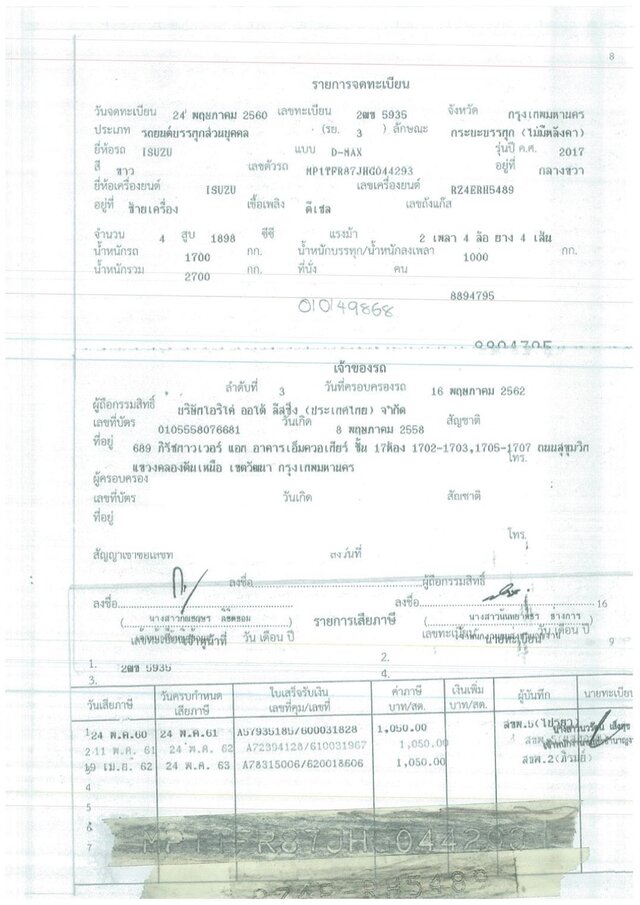 8
รายการจดทะเบียน
วันจดทะเบียน 24 พฤษภาคม 2560 เลขทะเบียน 2ฒช 5935 จังหวัด กรุงเทพมหานคร
ประเภท รถยนต์บรรทุกส่วนบุคคล (รย. 3 ) ลักษณะ กระบะบรรทุก (ไม่มีหลังคา)
ยี่ห้อรถ ISUZU แบบ D-MAX รุ่นปี ค.ศ. 2017
สี ขาว เลขตัวรถ MP1TFR87JHG044293 อยู่ที่ กลางขวา
ยี่ห้อเครื่องยนต์ ISUZU เลขเครื่องยนต์ RZ4ERH5489
อยู่ที่ ซ้ายเครื่อง เชื้อเพลิง ดีเซล เลขถังแก๊ส
จำนวน 4 สูบ 1898 ซีซี แรงม้า 2 เพลา 4 ล้อ ยาง 4 เส้น
น้ำหนักรถ 1700 กก. น้ำหนักบรรทุก/น้ำหนักลงเพลา 1000 กก.
น้ำหนักรวม 2700 กก. ที่นั่ง คน
8894795
010149868
เจ้าของรถ
ลำดับที่ 3 วันที่ครอบครองรถ 16 พฤษภาคม 2562
ผู้ถือกรรมสิทธิ์ บริษัทโอริโค่ ออโต้ ลีสซิ่ง (ประเทศไทย) จำกัด
เลขที่บัตร 0105558076681 วันเกิด 8 พฤษภาคม 2558 สัญชาติ
ที่อยู่ 689 ภิรัชทาวเวอร์ แอท อาคารเอ็มควอเทียร์ ชั้น 17ห้อง 1702-1703,1705-1707 ถนนสุขุมวิท
แขวงคลองตันเหนือ เขตวัฒนา กรุงเทพมหานคร โทร.
ผู้ครอบครอง
เลขที่บัตร วันเกิด สัญชาติ
ที่อยู่
โทร.
สัญญาเช่าซื้อเลขที่ ลงวันที่
ลงชื่อ ผู้ถือกรรมสิทธิ์
ลงชื่อ ลงชื่อ 16
รายการเสียภาษี
เจ้าหน้าที่ วัน เดือน ปี นายทะเบียน วัน เดือน ปี 9
1. 2ฒช 5935 2.
3. 4.
วันเสียภาษี วันครบกำหนดเสียภาษี ใบเสร็จรับเงิน เล่มที่คุม/เลขที่ ค่าภาษี บาท/สต. เงินเพิ่ม บาท/สต. ผู้บันทึก นายทะเบียน
1 24 พ.ค.60 24 พ.ค.61 A57935185/600031828 1,050.00
2 11 พ.ค. 61 24 พ.ค. 62 A72394128/610031967 1,050.00
9 เม.ย. 62 24 พ.ค. 63 A78315006/620018606 1,050.00 สขพ.2(ภิรมย์)
4
5
6
7
MP1TFR87JH 044293